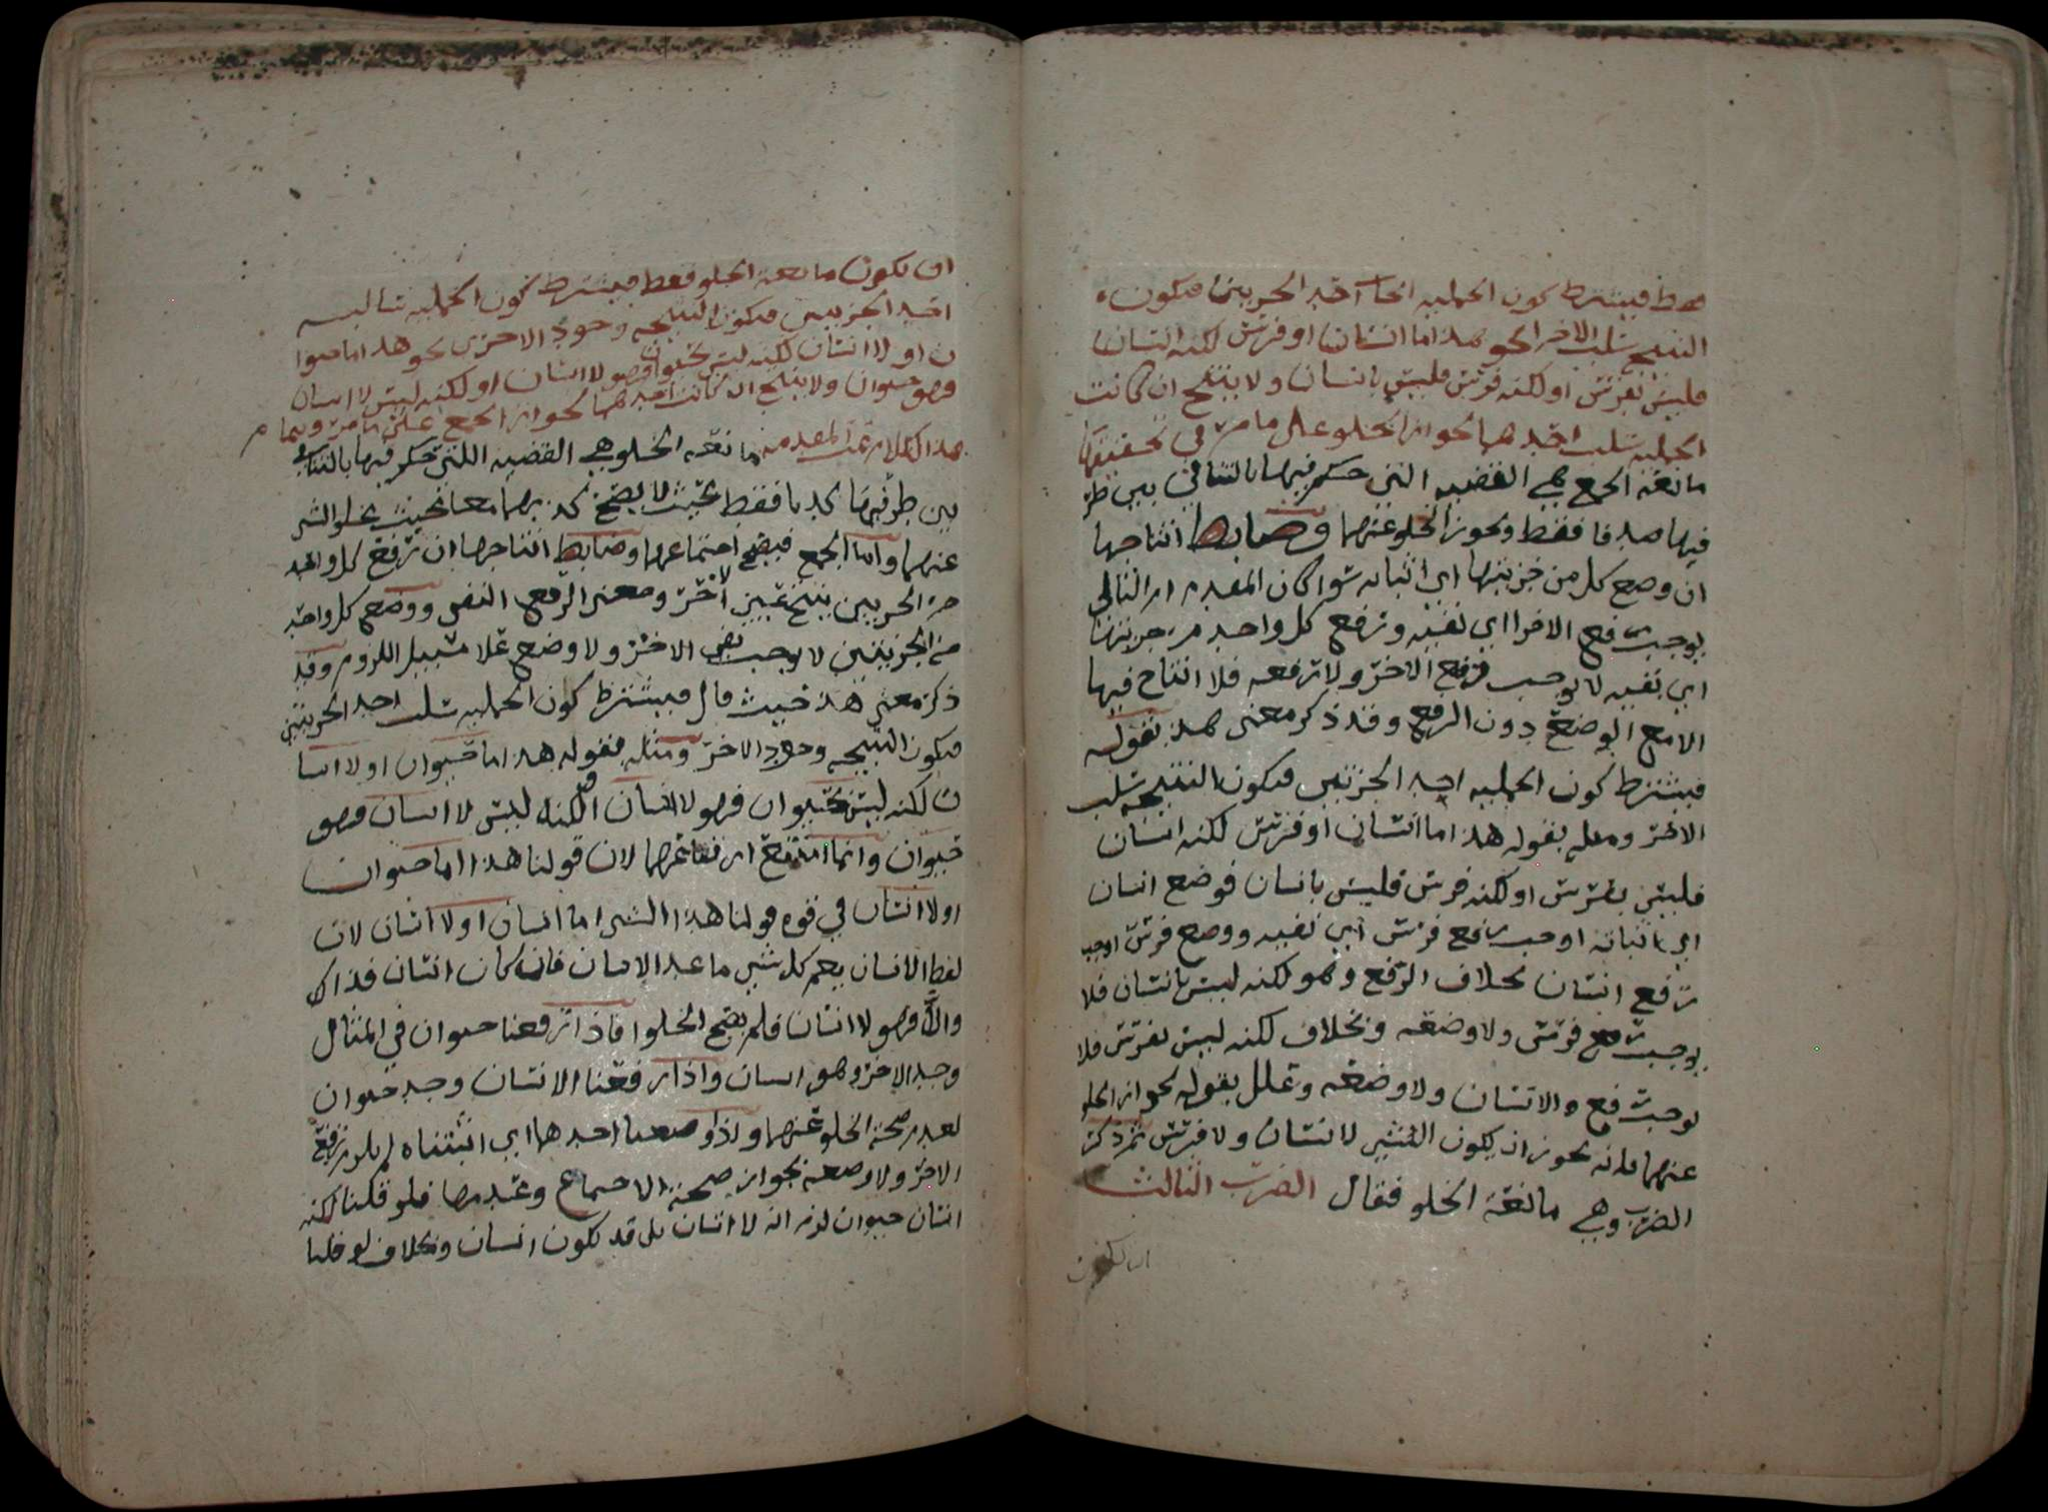 فقط فيشترط كون الحملية اثبات احد الجزيين فتكون
النتيجه سلب الاخر نحو هذا اما انسان او فرس لكنه انسان
فليس بفرس او لكنه فرس فليس بانسان ولا ينتج ان كانت
الحمليه سلب احدهما لجواز الخلو على ما مر في تحقيقها
مانعة الجمع هي القضيه التي حكم فيها بالتنافي بين طر
فيها صدقا فقط ويجوز الخلو عنهما وضابط انتاجها
ان وضع كل من جزييها اي اثباته سوا كان المقدم او التالي
يوجب رفع الاخر اي نفيه ورفع كل واحد من جزييها
اي نفيه لا يوجب رفع الاخر ولا رفعه فلا انتاج فيها
الا مع الوضع دون الرفع وقد ذكر معنى هذا بقوله
فيشترط كون الحمليه احد الجزئين فتكون النتيجه سلب
الاخر ومثله بقوله هذا اما انسان او فرس لكنه انسان
فليس بفرس او لكنه فرس فليس بانسان فوضع انسان
اي اثباته اوجب رفع فرس اي نفيه ووضع فرس اوجب
رفع انسان بخلاف الرفع وهو لكنه ليس بانسان فلا
يوجب رفع فرس ولا وضعه وبخلاف لكنه ليس بفرس فلا
يوجب رفع والانسان ولا وضعه وعلل بقوله لجواز الخلو
عنهما فانه يجوز ان يكون الشي لا انسان ولا فرس ثم ذكر
الضرب وهي مانعة الخلو فقال الضرب الثالث
ان يكون
ان يكون مانعة الخلو فقط فيشترط كون الحمليه سالبه
احد الجزيين فتكون النتيجه وجود الاخرى نحو هذا اما حيوا
ن او لا انسان لكنه ليس بحيوان فهو لا انسان او لكنه ليس لا انسان
فهو حيوان ولا ينتج ان كانت احدهما لجواز الجمع على ما مر وبتمام
هذا الكلام تمت المقدمه مانعة الخلو هي القضيه اللتي حكم فيها بالتنافي
بين طرفيها كذبا فقط بحيث لا يصح كذبهما معا بحيث يخلو الشي
عنهما واما الجمع فيصح اجتماعهما وضابط انتاجها ان رفع كل واحد
من الجزيين ينتج عين الاخر ومعنى الرفع النفي ووضع كل واحد
من الجزيين لا يوجب نفي الاخر ولا وضع علا سبيل اللزوم وقد
ذكر معنى هذا حيث قال فيشترط كون الحمليه سلب احد الجزيين
فتكون النتيجه وجود الاخر ومثله بقوله هذا اما حيوان او لا انسا
ن لكنه ليس بحيوان فهو لا انسان او لكنه ليس لا انسان فهو
حيوان وانما امتنع ارتفاعهما لان قولنا هذا اما حيوان
او لا انسان في قوه قولنا هذا الشي اما انسان او لا انسان لان
لفظ لا انسان يعم كل شي ما عدا الانسان فان كان انسان فذاك
والا فهو لا انسان فلم يصح الخلو فاذا رفعنا حيوان في المثال
وجد الاخر وهو انسان واذا رفعنا الانسان وجد حيوان
لعدم صحة الخلو عنهما واذا وضعنا احدهما اي اثبتناه لم يلزم رفع
الاخر ولا وضعه لجواز صحة الاجتماع وعدمها فلو قلنا لكنه
انسان حيوان لزم انه لا انسان بل قد يكون انسان وبخلاف لو قلنا